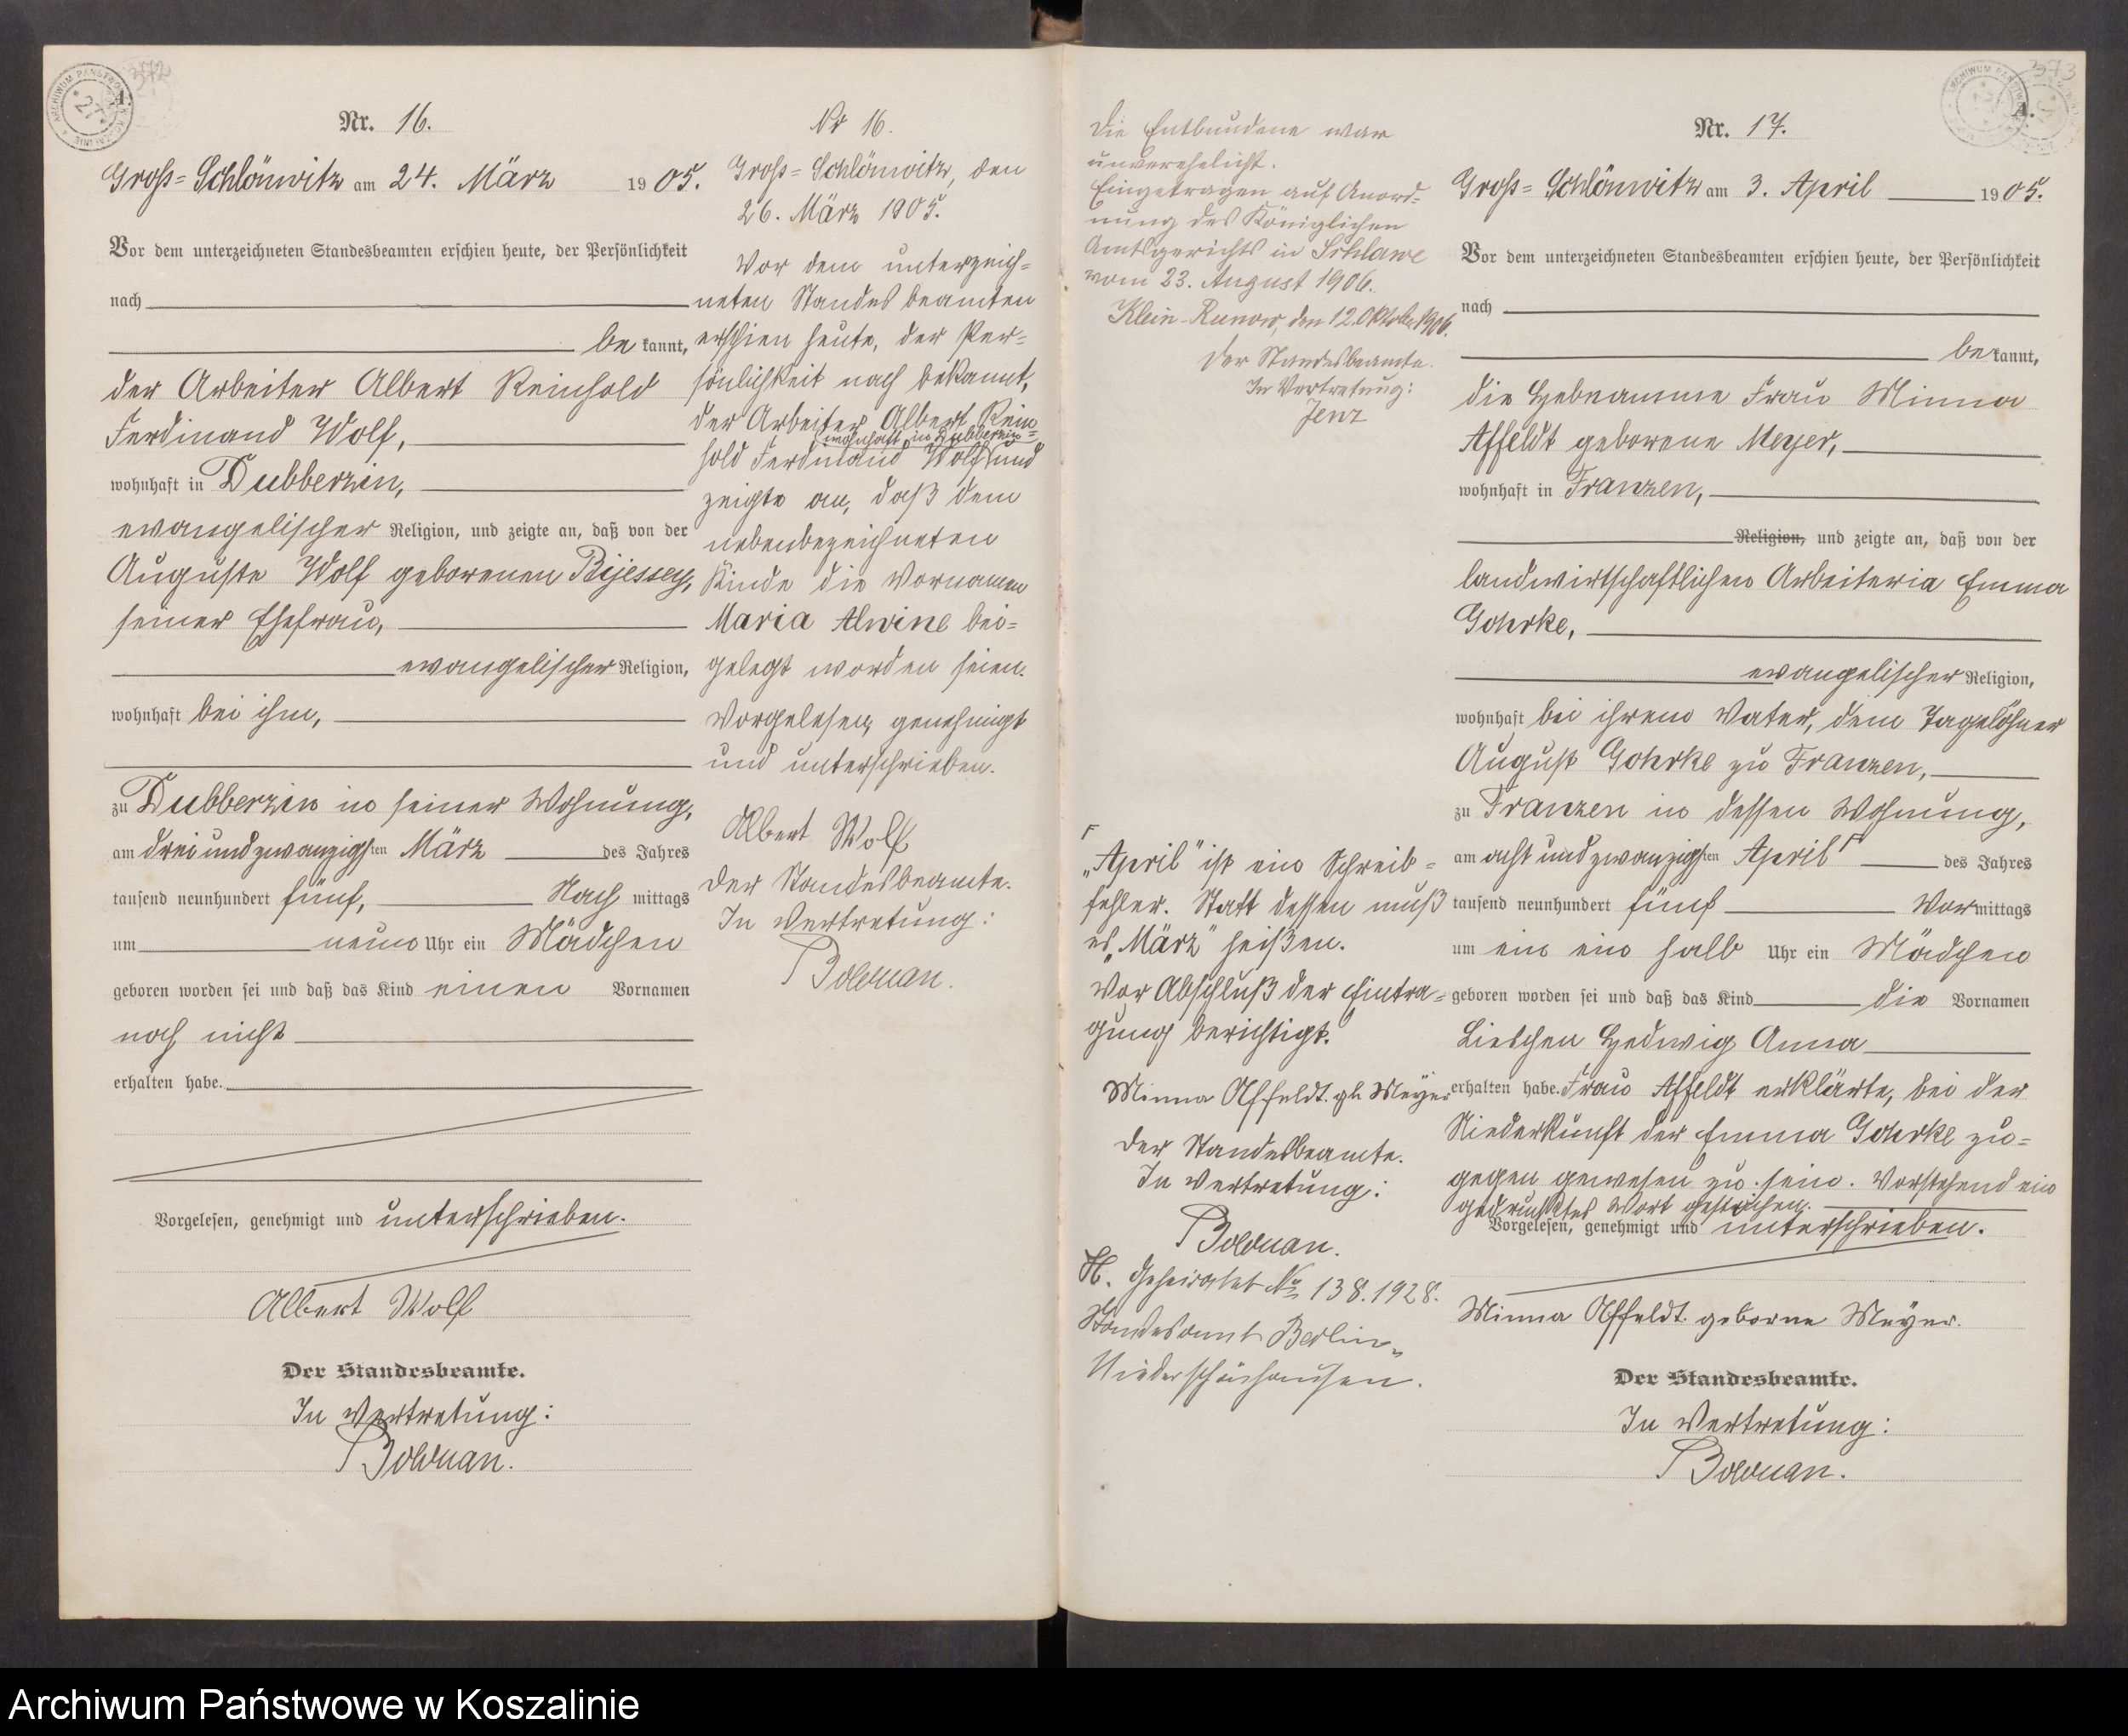 372
A.
Nr. 16.
Groß-Schlönwitz am 24. März 1905.
Vor dem unterzeichneten Standesbeamten erschien heute, der Persönlichkeit
nach
bekannt,
der Arbeiter Albert Reinhold
Ferdinand Wolf,
wohnhaft in Dubberzin,
evangelischer Religion, und zeigte an, daß von der
Auguste Wolf geborenen
seiner Ehefrau,
evangelischer Religion,
wohnhaft bei ihm,
zu Dubberzin in seiner Wohnung,
am dreiundzwanzigsten März des Jahres
tausend neunhundert fünf, Nachmittags
um neun Uhr ein Mädchen
geboren worden sei und daß das Kind einen Vornamen
noch nicht
erhalten habe.
Vorgelesen, genehmigt und unterschrieben.
Albert Wolf
Der Standesbeamte.
In Vertretung:
Bolduan.
Nr 16.
Groß-Schlönwitz, den
26. März 1905.
Vor dem unterzeich-
neten Standesbeamten
erschien heute, der Per-
sönlichkeit nach bekannt,
der Arbeiter Albert Rein-
wohnhaft in Dubberzin
hold Ferdinand Wolf und
zeigte an, daß dem
nebenbezeichneten
Kinde die Vornamen
Maria Alwine bei-
gelegt worden seien.
Vorgelesen, genehmigt
und unterschrieben.
Albert Wolf
Der Standesbeamte.
In Vertretung:
Bolduan.
Die Entbundene war
unverehelicht.
Eingetragen auf Anord-
nung des Königlichen
Amtsgerichts in Schlawe
vom 23. August 1906.
Klein-Runow, den 12. Oktober 1906.
Der Standesbeamte.
In Vertretung:
Jenz
„April" ist ein Schreib-
fehler. Statt dessen muß
es „März" heißen.
Vor Abschluß der Eintra-
gung berichtigt.
Minna Affeldt. gb Meyer
Der Standesbeamte.
In Vertretung:
Bolduan.
H. Geheiratet No 138.1928.
Standesamt Berlin-
Niederschönhausen.
373
A.
Nr. 17.
Groß-Schlönwitz am 3. April 1905.
Vor dem unterzeichneten Standesbeamten erschien heute, der Persönlichkeit
nach
bekannt,
die Hebeamme Frau Minna
Affeldt geborene Meyer,
wohnhaft in Franzen,
Religion, und zeigte an, daß von der
landwirtschaftlichen Arbeiterin Emma
Gohrke,
evangelischer Religion,
wohnhaft bei ihrem Vater, dem Tagelöhner
August Gohrke zu Franzen,
zu Franzen in dessen Wohnung,
am acht und zwanzigsten April des Jahres
tausend neunhundert fünf Vormittags
um ein ein halb Uhr ein Mädchen
geboren worden sei und daß das Kind die Vornamen
Lieschen Hedwig Anna
erhalten habe. Frau Affeldt erklärte, bei der
Niederkunft der Emma Gohrke zu-
gegen gewesen zu sein. Vorstehend ein
gedrucktes Wort gestrichen.
Vorgelesen, genehmigt und unterschrieben.
Minna Affeldt. geborne Meyer.
Der Standesbeamte.
In Vertretung:
Bolduan.
Archiwum Państwowe w Koszalinie